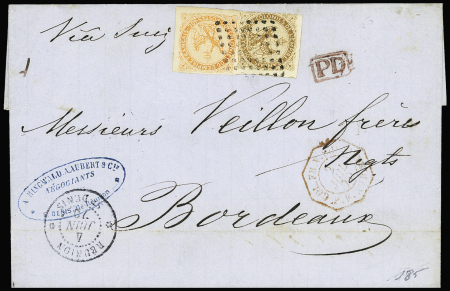 Via Suez
PD
Messieurs Veillon frères
Negts
A. RINGWALD A. AUBERT & Cie
NÉGOCIANTS
Bordeaux
4
JUIN
REUNION
ST DENIS
185